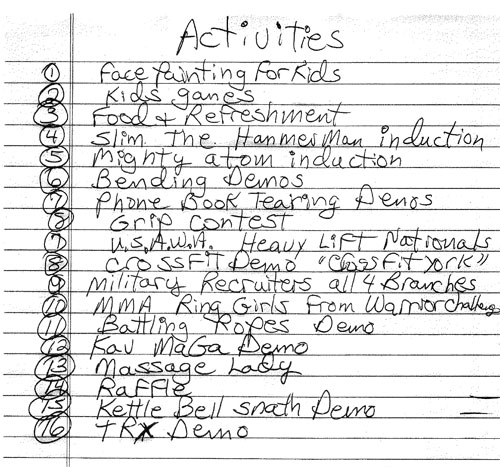 Activities
1 Face Painting For Kids
2 Kids games
3 Food & Refreshment
4 Slim The Hammer Man induction
5 Mighty atom induction
6 Bending Demos
7 Phone Book Tearing Demos
8 Grip Contest
7 U.S.A.W.A. Heavy Lift Nationals
8 CrossFit Demo "CrossFit York"
9 Military Recruiters all 4 Branches
10 MMA Ring Girls From Warrior Challenge
11 Battling Ropes Demo
12 Kav MaGa Demo
13 Massage Lady
14 Raffle
15 Kettle Bell snath Demo
16 TRX Demo